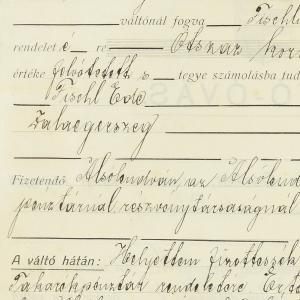 váltónál fogva Tischl
rendelet é re Oszkár
értéke felvétetett s tegye számolásba tud
Tischl Ede
Zalaegerszeg
Fizetendő Alsólendván, az Alsólend
pénztárnál, részvénytársaságnál
A váltó hátán: Helyettem fizettessék
Takarékpénztár rendeletére Ért